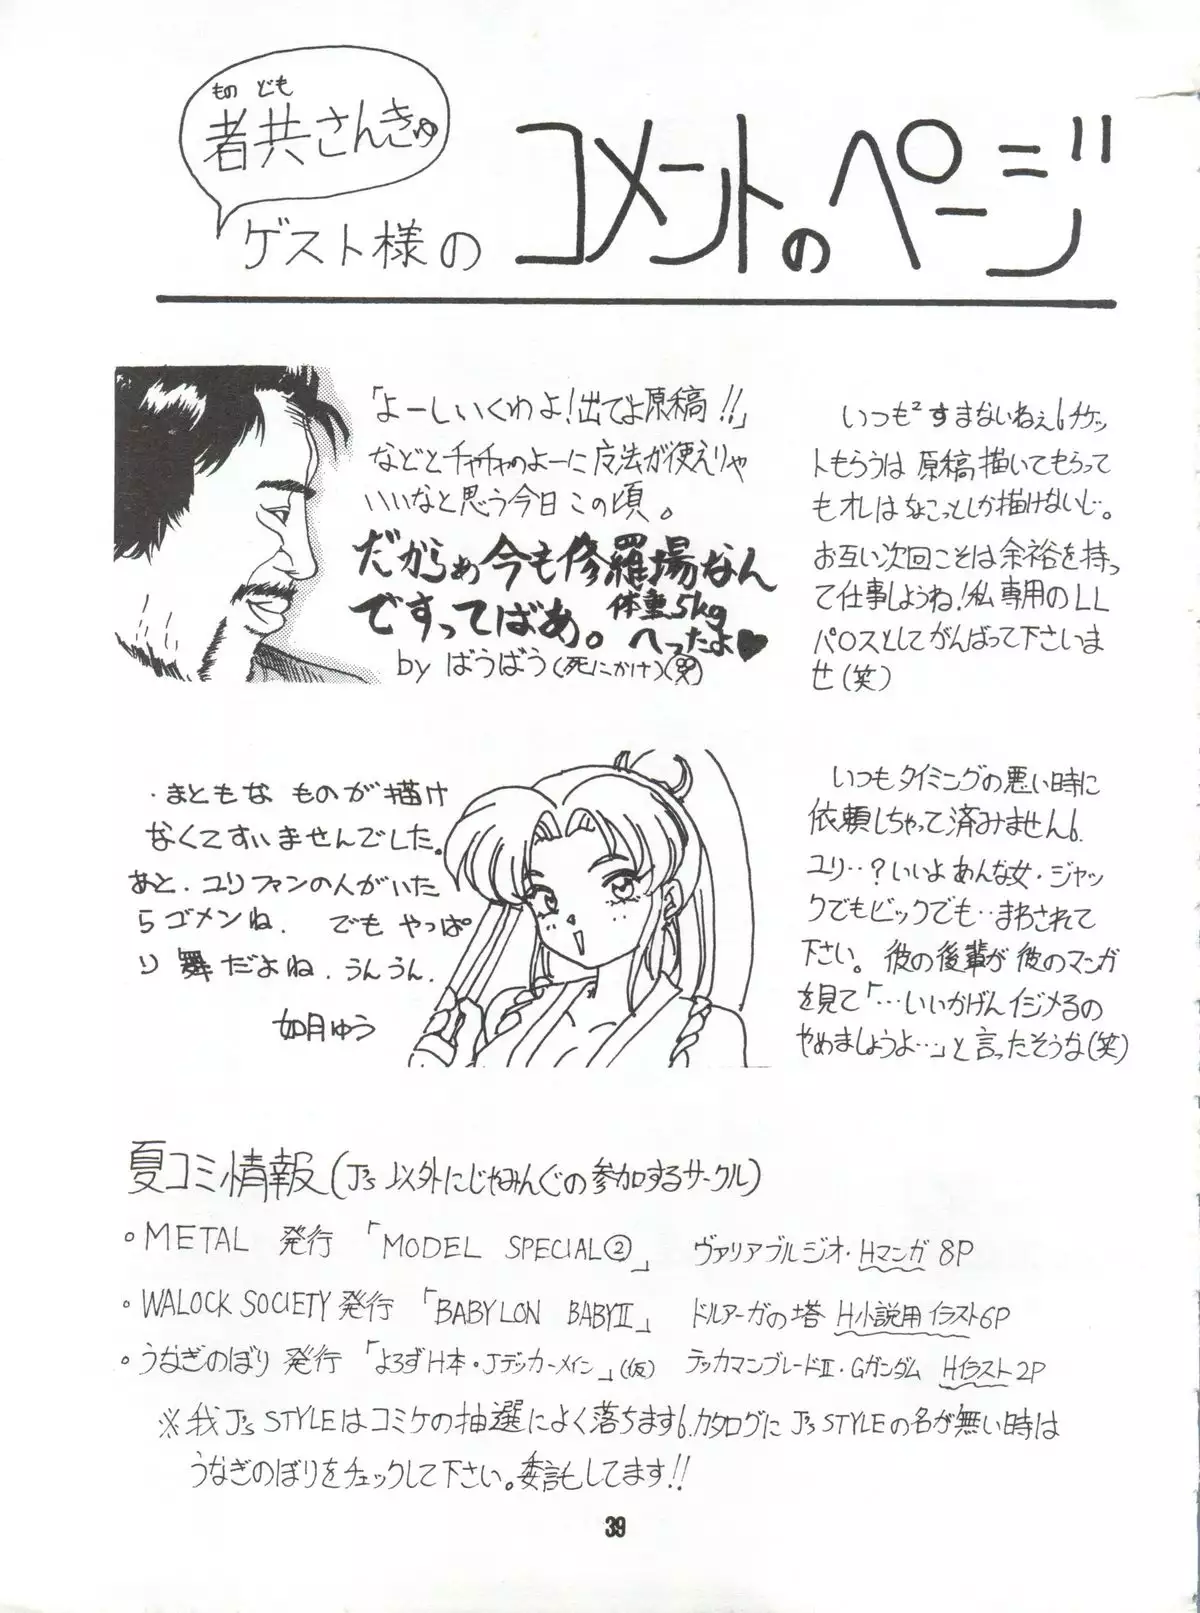 もの ども
者共さんきゅ
ゲスト様の コメントのページ
「よーしいくわよ!出てよ原稿!!」
などとチャチャのよーに魔法が使えりゃ
いいなと思う今日この頃。
だからぁ今も修羅場なん
ですってばあ。
体重5kg
へったよ♥
by ばうばう(死にかけ)(笑)
いつも²すまないねぇ。チケッ
トもらうは 原稿描いてもらって
もオレはちょこっとしか描けないじ。
お互い次回こそは余裕を持っ
て仕事しようね!私専用のLL
パロスとしてがんばって下さいま
せ(笑)
・まともな ものが描け
なくてすいませんでした。
あと、ユリファンの人がいた
らゴメンね. でも やっぱ
り 舞だよね. うんうん.
如月ゆう
いつもタイミングの悪い時に
依頼しちゃって済みません。
ユリ…?いいよあんな女・ジャッ
クでもビックでも‥まわされて
下さい。彼の後輩が彼のマンガ
を見て「…いいかげんイジメるの
やめましょうよ…」と言ったそうな(笑)
夏コミ情報(J's 以外にじゃみんぐの参加するサークル)
○METAL 発行 「MODEL SPECIAL②」 ヴァリアブルジオ・Hマンガ 8P
○WALOCK SOCIETY発行 「BABYLON BABYⅡ」 ドルアーガの塔 H小説用イラスト6P
○うなぎのぼり 発行 「よろずH本・Jデッカーメイン」(仮) テッカマンブレードⅡ・Gガンダム Hイラスト2P
※我J's STYLEはコミケの抽選によく落ちます。カタログに J's STYLEの名が無い時は
うなぎのぼりをチェックして下さい。委託してます!!
39